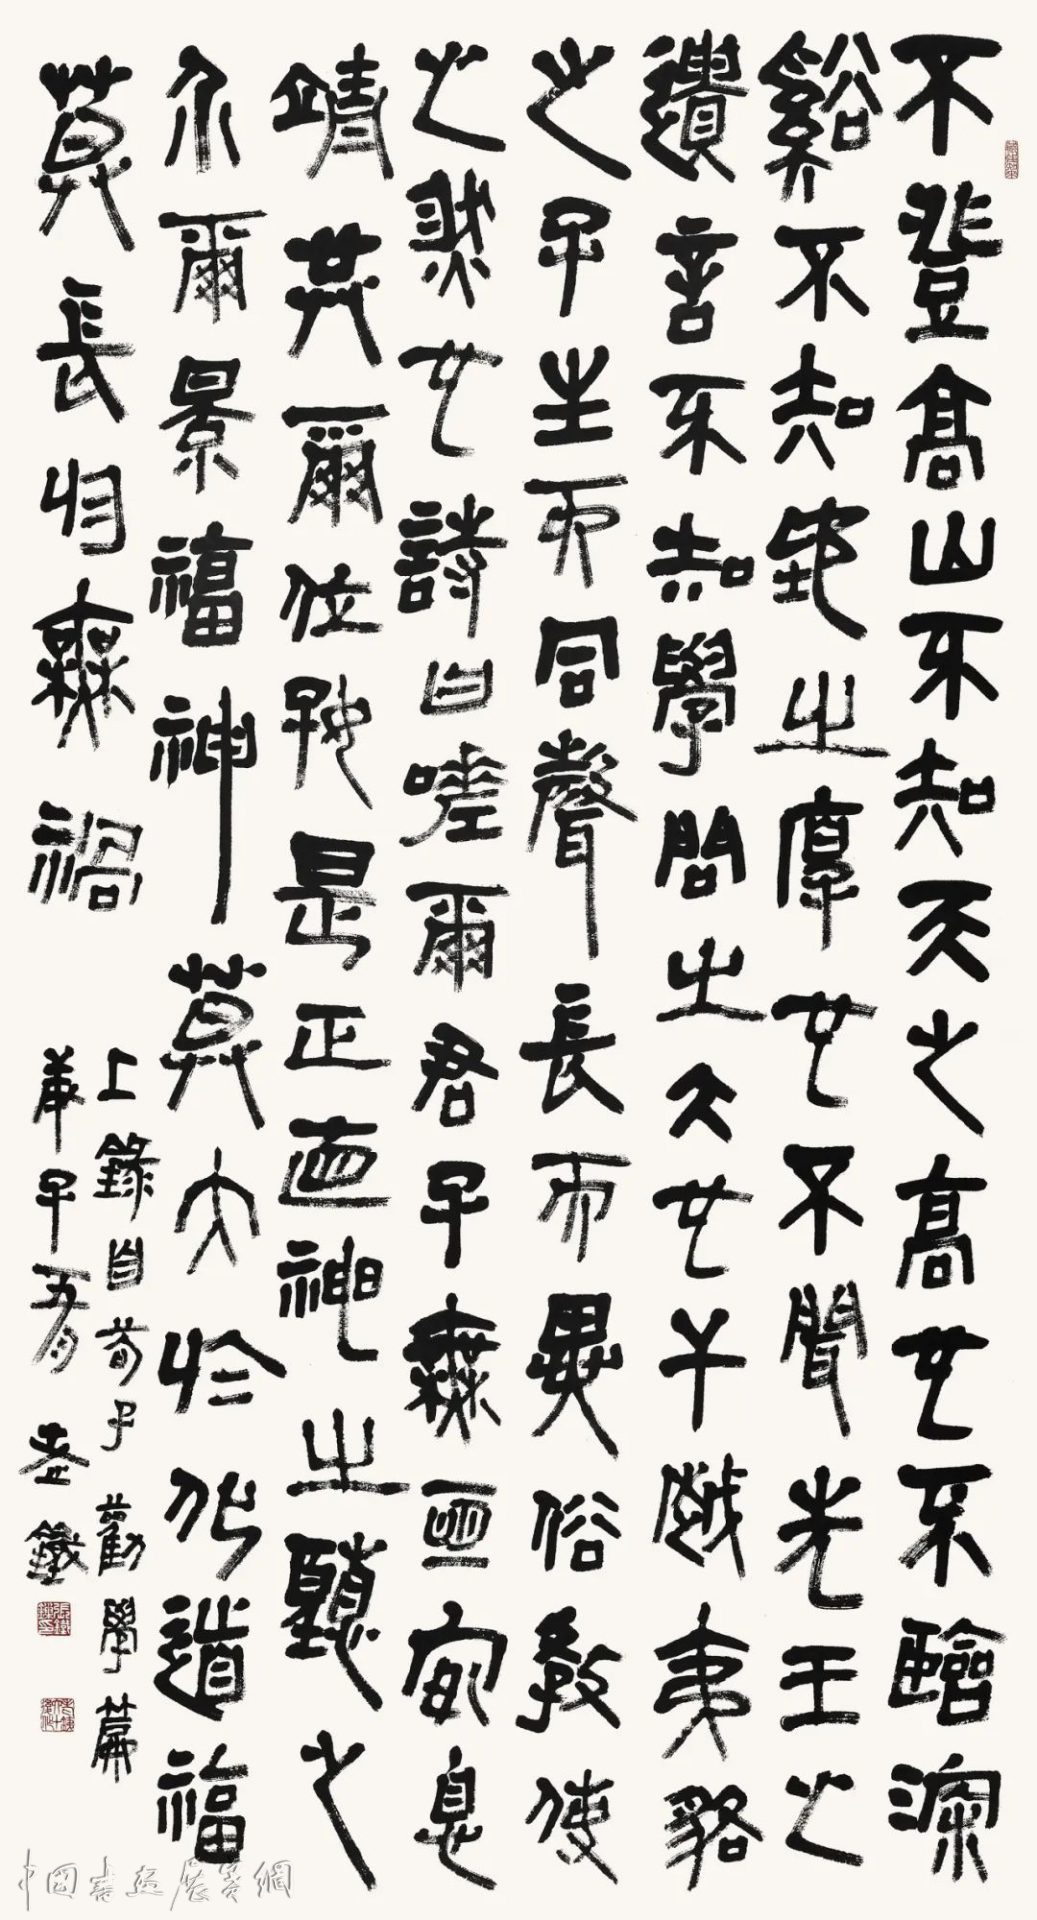 不登高山不知天之高也不臨深
谿不知地之厚也不聞先王之
遺言不知學問之大也干越夷貉
之子生而同聲長而異俗教使
之然也詩曰嗟爾君子無亙安息
靖共爾位好是正直神之聽之
介爾景福神莫大於化道福
莫長於無禍
上錄自荀子勸學篇
庚子五月 老鐵
中國書畫展賽網